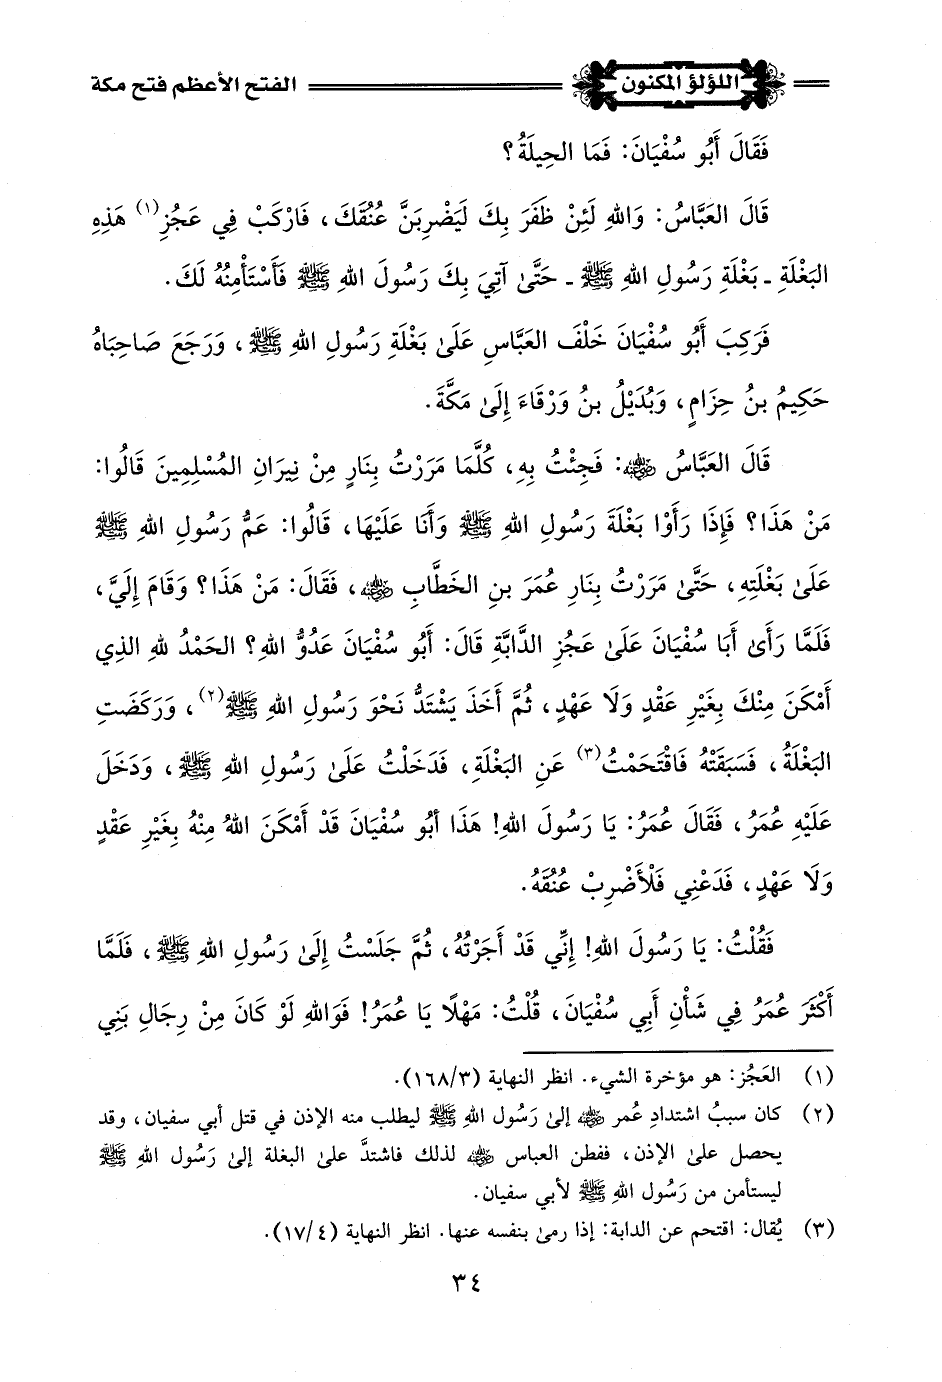 اللؤلؤ المكنون الفتح الأعظم فتح مكة
فَقَالَ أَبُو سُفْيَانَ: فَمَا الحِيلَةُ؟
قَالَ العَبَّاسُ: وَاللهِ لَئِنْ ظَفَرَ بِكَ لَيَضْرِبَنَّ عُنُقَكَ، فَارْكَبْ فِي عَجُزِ(١) هَذِهِ
البَغْلَةِ ـ بَغْلَةِ رَسُولِ اللهِ ﷺ ـ حَتَّىٰ آتِيَ بِكَ رَسُولَ اللهِ ﷺ فَأَسْتَأْمِنُهُ لَكَ.
فَرَكِبَ أَبُو سُفْيَانَ خَلْفَ العَبَّاسِ عَلَىٰ بَغْلَةِ رَسُولِ اللهِ ﷺ، وَرَجَعَ صَاحِبَاهُ
حَكِيمُ بنُ حِزَامٍ، وَبُدَيْلُ بنُ وَرْقَاءَ إِلَىٰ مَكَّةَ.
قَالَ العَبَّاسُ رضي الله عنه: فَجِئْتُ بِهِ، كُلَّمَا مَرَرْتُ بِنَارٍ مِنْ نِيرَانِ المُسْلِمِينَ قَالُوا:
مَنْ هَذَا؟ فَإِذَا رَأَوْا بَغْلَةَ رَسُولِ اللهِ ﷺ وَأَنَا عَلَيْهَا، قَالُوا: عَمُّ رَسُولِ اللهِ ﷺ
عَلَىٰ بَغْلَتِهِ، حَتَّىٰ مَرَرْتُ بِنَارِ عُمَرَ بنِ الخَطَّابِ رضي الله عنه، فَقَالَ: مَنْ هَذَا؟ وَقَامَ إِلَيَّ،
فَلَمَّا رَأَىٰ أَبَا سُفْيَانَ عَلَىٰ عَجُزِ الدَّابَّةِ قَالَ: أَبُو سُفْيَانَ عَدُوُّ اللهِ؟ الحَمْدُ لِلهِ الذِي
أَمْكَنَ مِنْكَ بِغَيْرِ عَقْدٍ وَلَا عَهْدٍ، ثُمَّ أَخَذَ يَشْتَدُّ نَحْوَ رَسُولِ اللهِ ﷺ(٢)، وَرَكَضَتِ
البَغْلَةُ، فَسَبَقَتْهُ فَاقْتَحَمْتُ(٣) عَنِ البَغْلَةِ، فَدَخَلْتُ عَلَىٰ رَسُولِ اللهِ ﷺ، وَدَخَلَ
عَلَيْهِ عُمَرُ، فَقَالَ عُمَرُ: يَا رَسُولَ اللهِ! هَذَا أبُو سُفْيَانَ قَدْ أَمْكَنَ اللهُ مِنْهُ بِغَيْرِ عَقْدٍ
وَلَا عَهْدٍ، فَدَعْنِي فَلْأَضْرِبْ عُنُقَهُ.
فَقُلْتُ: يَا رَسُولَ اللهِ! إِنِّي قَدْ أَجَرْتُهُ، ثُمَّ جَلَسْتُ إِلَىٰ رَسُولِ اللهِ ﷺ، فَلَمَّا
أَكْثَرَ عُمَرُ فِي شَأْنِ أَبِي سُفْيَانَ، قُلْتُ: مَهْلًا يَا عُمَرُ! فَوَاللهِ لَوْ كَانَ مِنْ رِجَالِ بَنِي
(١) العَجُز: هو مؤخرة الشيء. انظر النهاية (١٦٨/٣).
(٢) كان سببُ اشتدادِ عُمر رضي الله عنه إلىٰ رَسُول اللهِ ﷺ ليطلب منه الإذن في قتل أبي سفيان، وقد
يحصل علىٰ الإذن، ففطن العباس رضي الله عنه لذلك فاشتدَّ علىٰ البغلة إلىٰ رَسُول اللهِ ﷺ
ليستأمن من رَسُول اللهِ ﷺ لأبي سفيان.
(٣) يُقال: اقتحم عن الدابة: إذا رمىٰ بنفسه عنها. انظر النهاية (١٧/٤).
٣٤